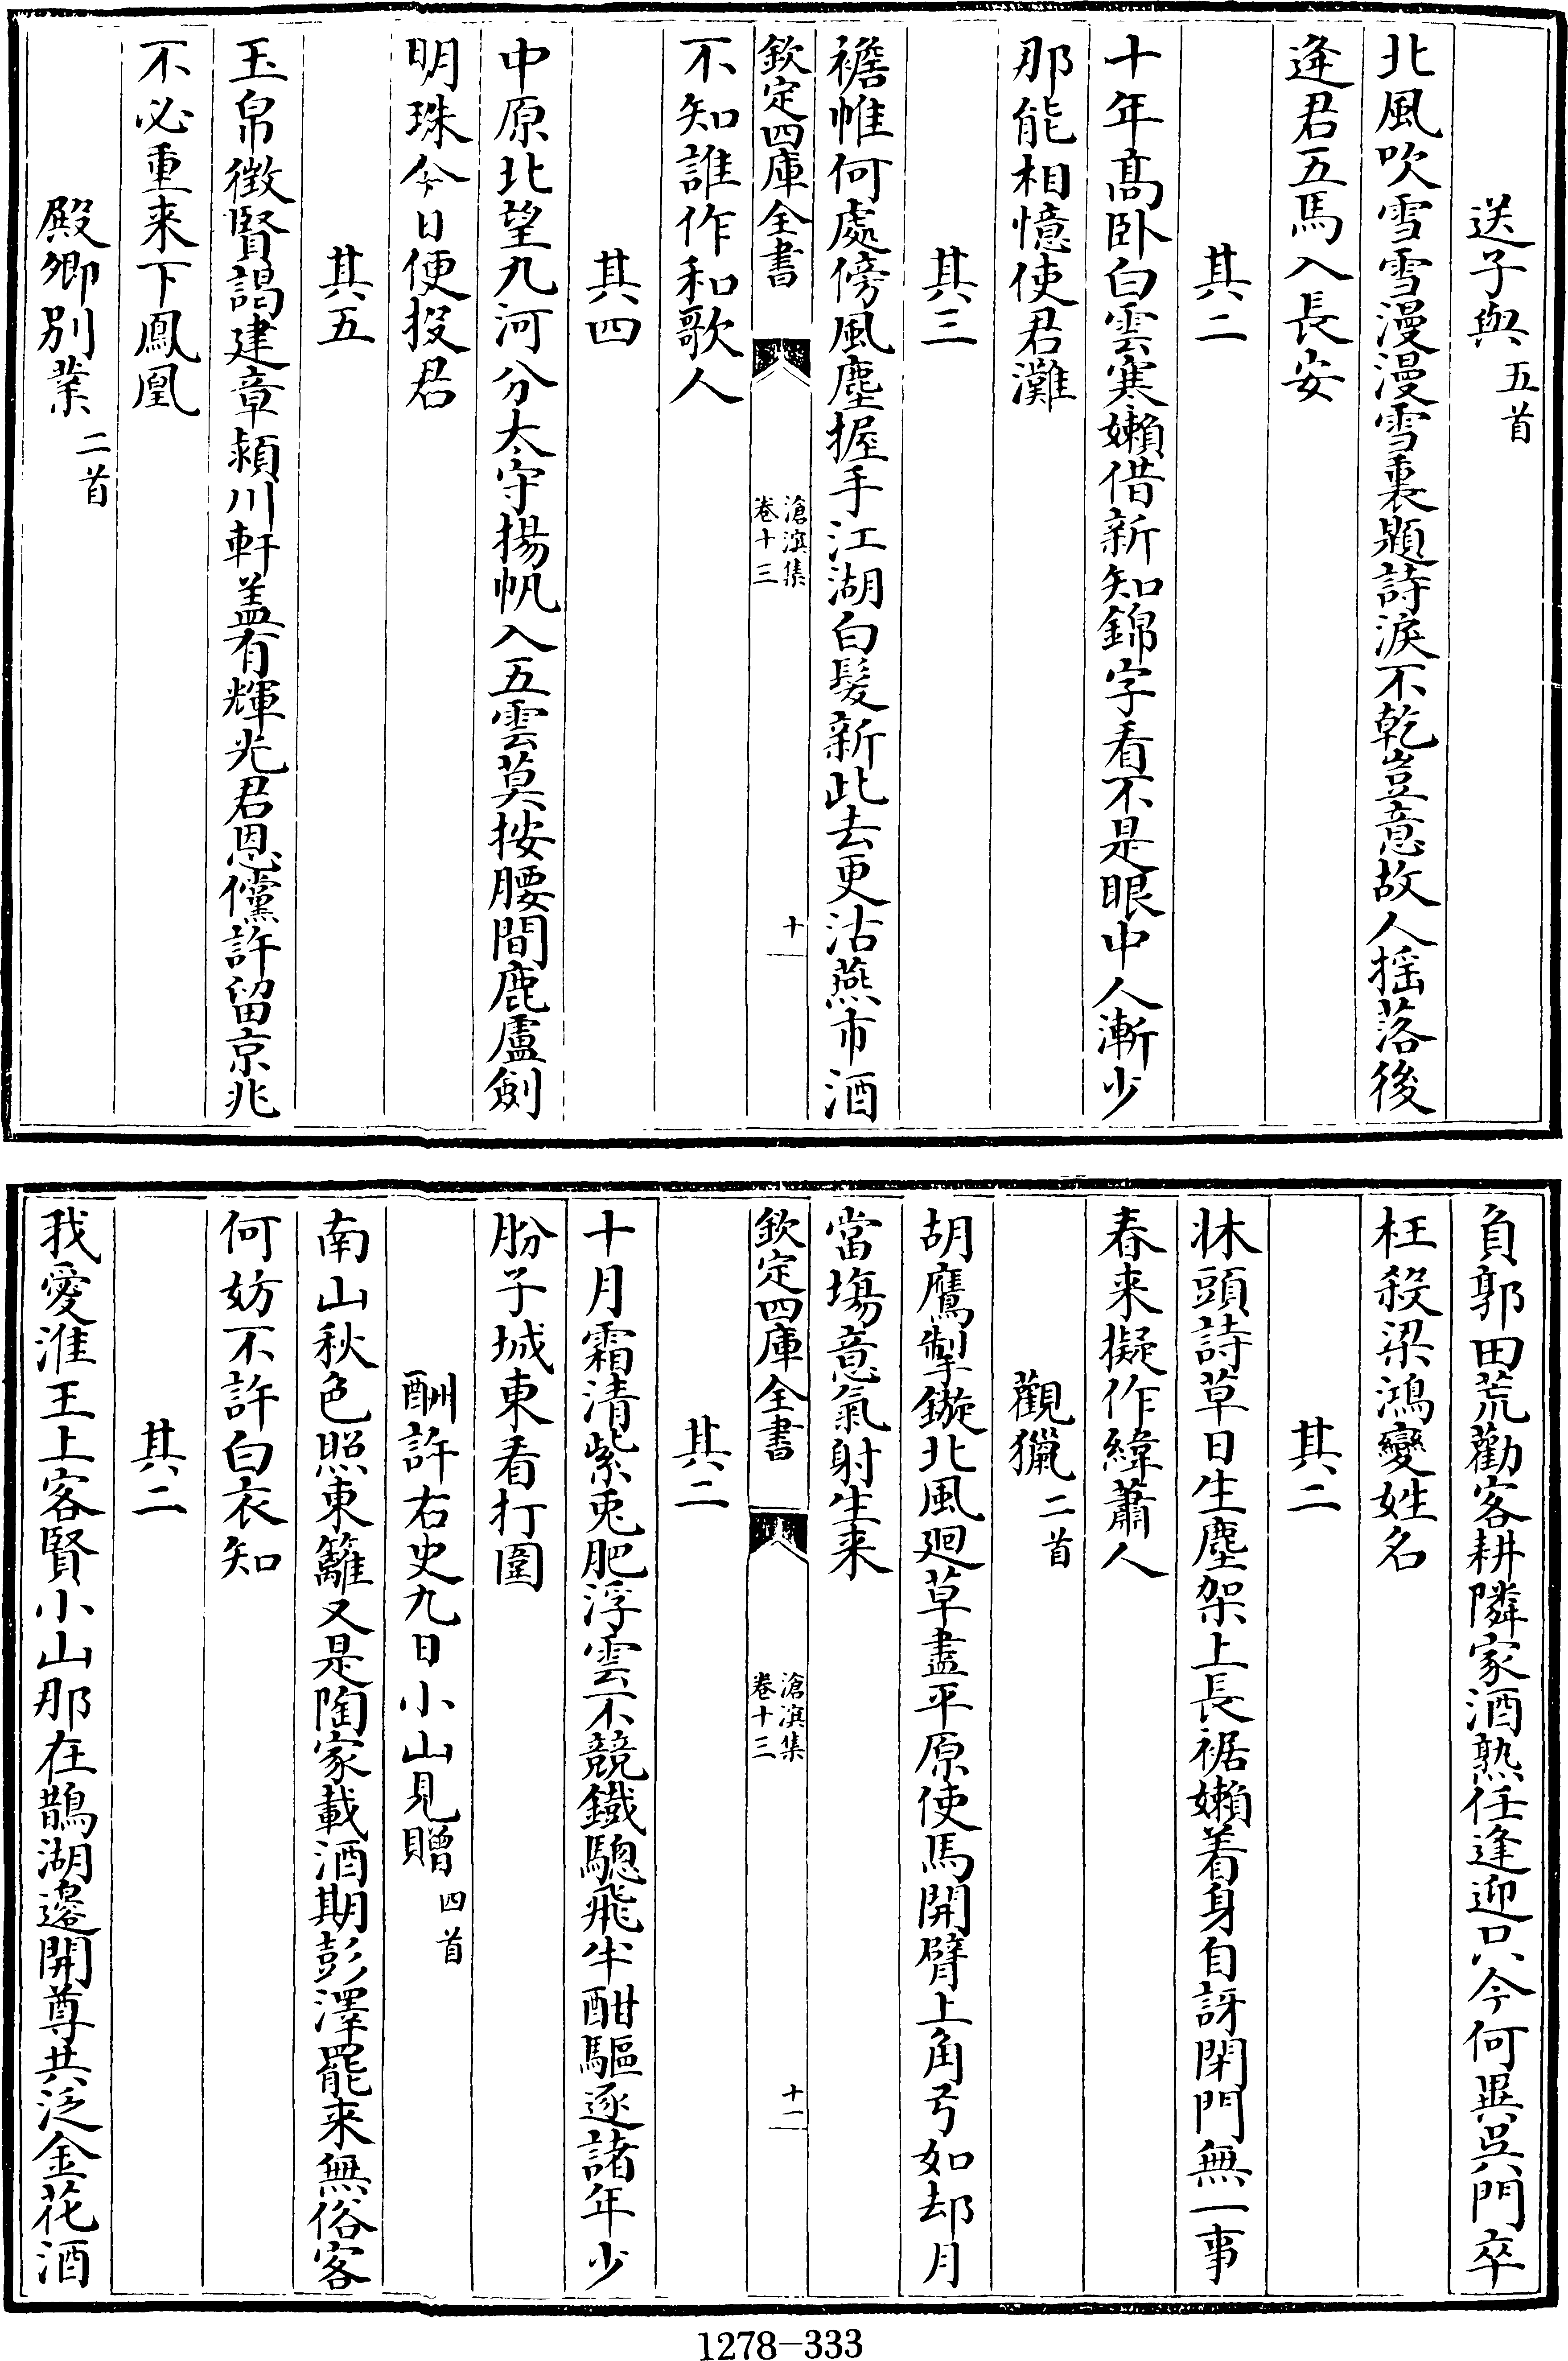 送子與五首
北風吹雪雪漫漫雪裏題詩淚不乾豈意故人揺落後
逢君五馬入長安
其二
十年髙卧白雲寒嬾借新知錦字看不是眼中人漸少
那能相憶使君灘
其三
襜帷何處傍風塵握手江湖白髮新此去更沽燕市酒
欽定四庫全書
滄溟集
卷十三
十
不知誰作和歌人
其四
中原北望九河分太守揚帆入五雲莫按腰間鹿盧劍
明珠今日便投君
其五
玉帛徴賢謁建章潁川軒葢有輝光君恩儻許留京兆
不必重来下鳳凰
殿卿别業二首
負郭田荒勸客耕隣家酒熟任逢迎只今何異吳門卒
枉殺梁鴻變姓名
其二
牀頭詩草日生塵架上長裾嬾着身自訝閉門無一事
春来擬作緯蕭人
觀獵二首
胡鷹掣鏇北風廻草盡平原使馬開臂上角弓如却月
當塲意氣射生来
欽定四庫全書
滄溟集
卷十三
十一
其二
十月霜清紫兎肥浮雲不競鐵驄飛半酣驅逐諸年少
肦子城東看打圍
酬許右史九日小山見贈四首
南山秋色照東籬又是陶家載酒期彭澤罷来無俗客
何妨不許白衣知
其二
我愛淮王上客賢小山那在鵲湖邉開尊共泛金花酒
1278-333